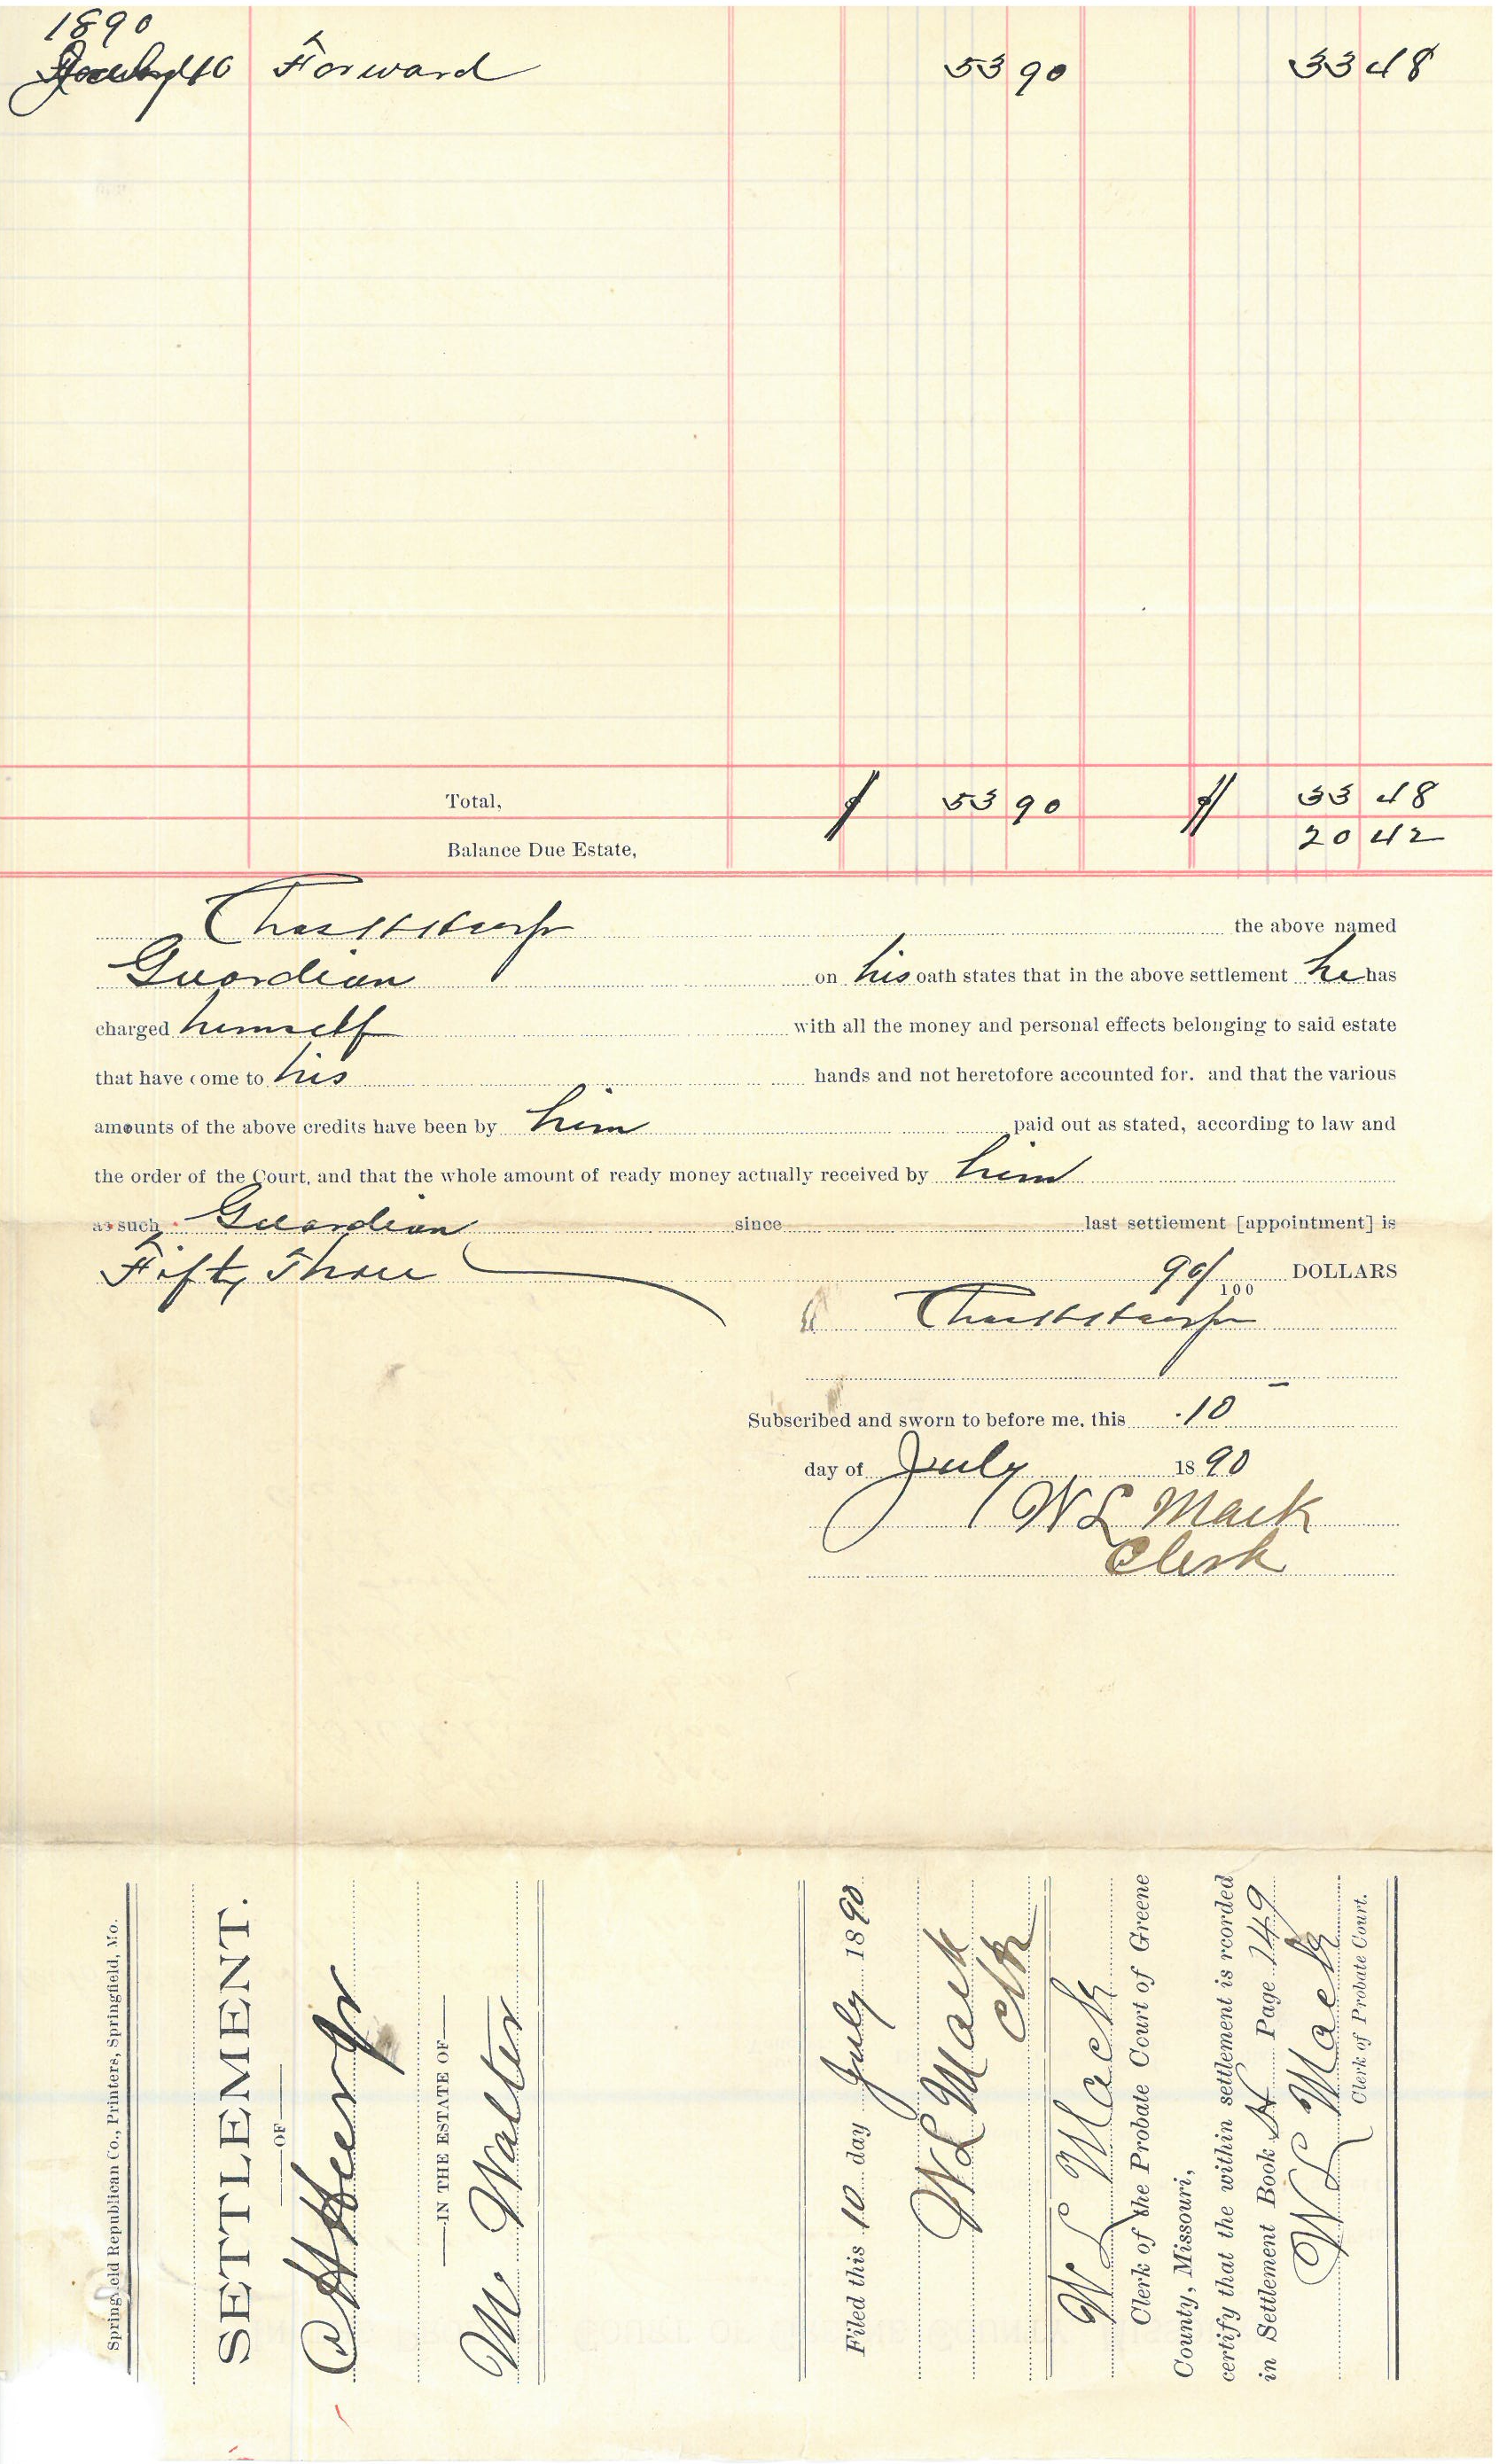 1890
July 10 Forward 53 90 33 48
Total, $ 53 90 $ 33 48
Balance Due Estate, 20 42
the above named
Guardian on his oath states that in the above settlement he has
charged himself with all the money and personal effects belonging to said estate
that have come to his hands and not heretofore accounted for. and that the various
amounts of the above credits have been by him paid out as stated, according to law and
the order of the Court, and that the whole amount of ready money actually received by him
as such Guardian since last settlement [appointment] is
Fifty Three 90/100 DOLLARS
Subscribed and sworn to before me, this 10
day of July 1890
W L Mack
Clerk
Springfield Republican Co., Printers, Springfield, Mo.
SETTLEMENT.
OF
IN THE ESTATE OF
M. Walter
Filed this 10 day July 1890
W L Mack
Clk
W L Mack
Clerk of the Probate Court of Greene
County, Missouri,
certify that the within settlement is rcorded
in Settlement Book Page 149
W L Mack
Clerk of Probate Court.